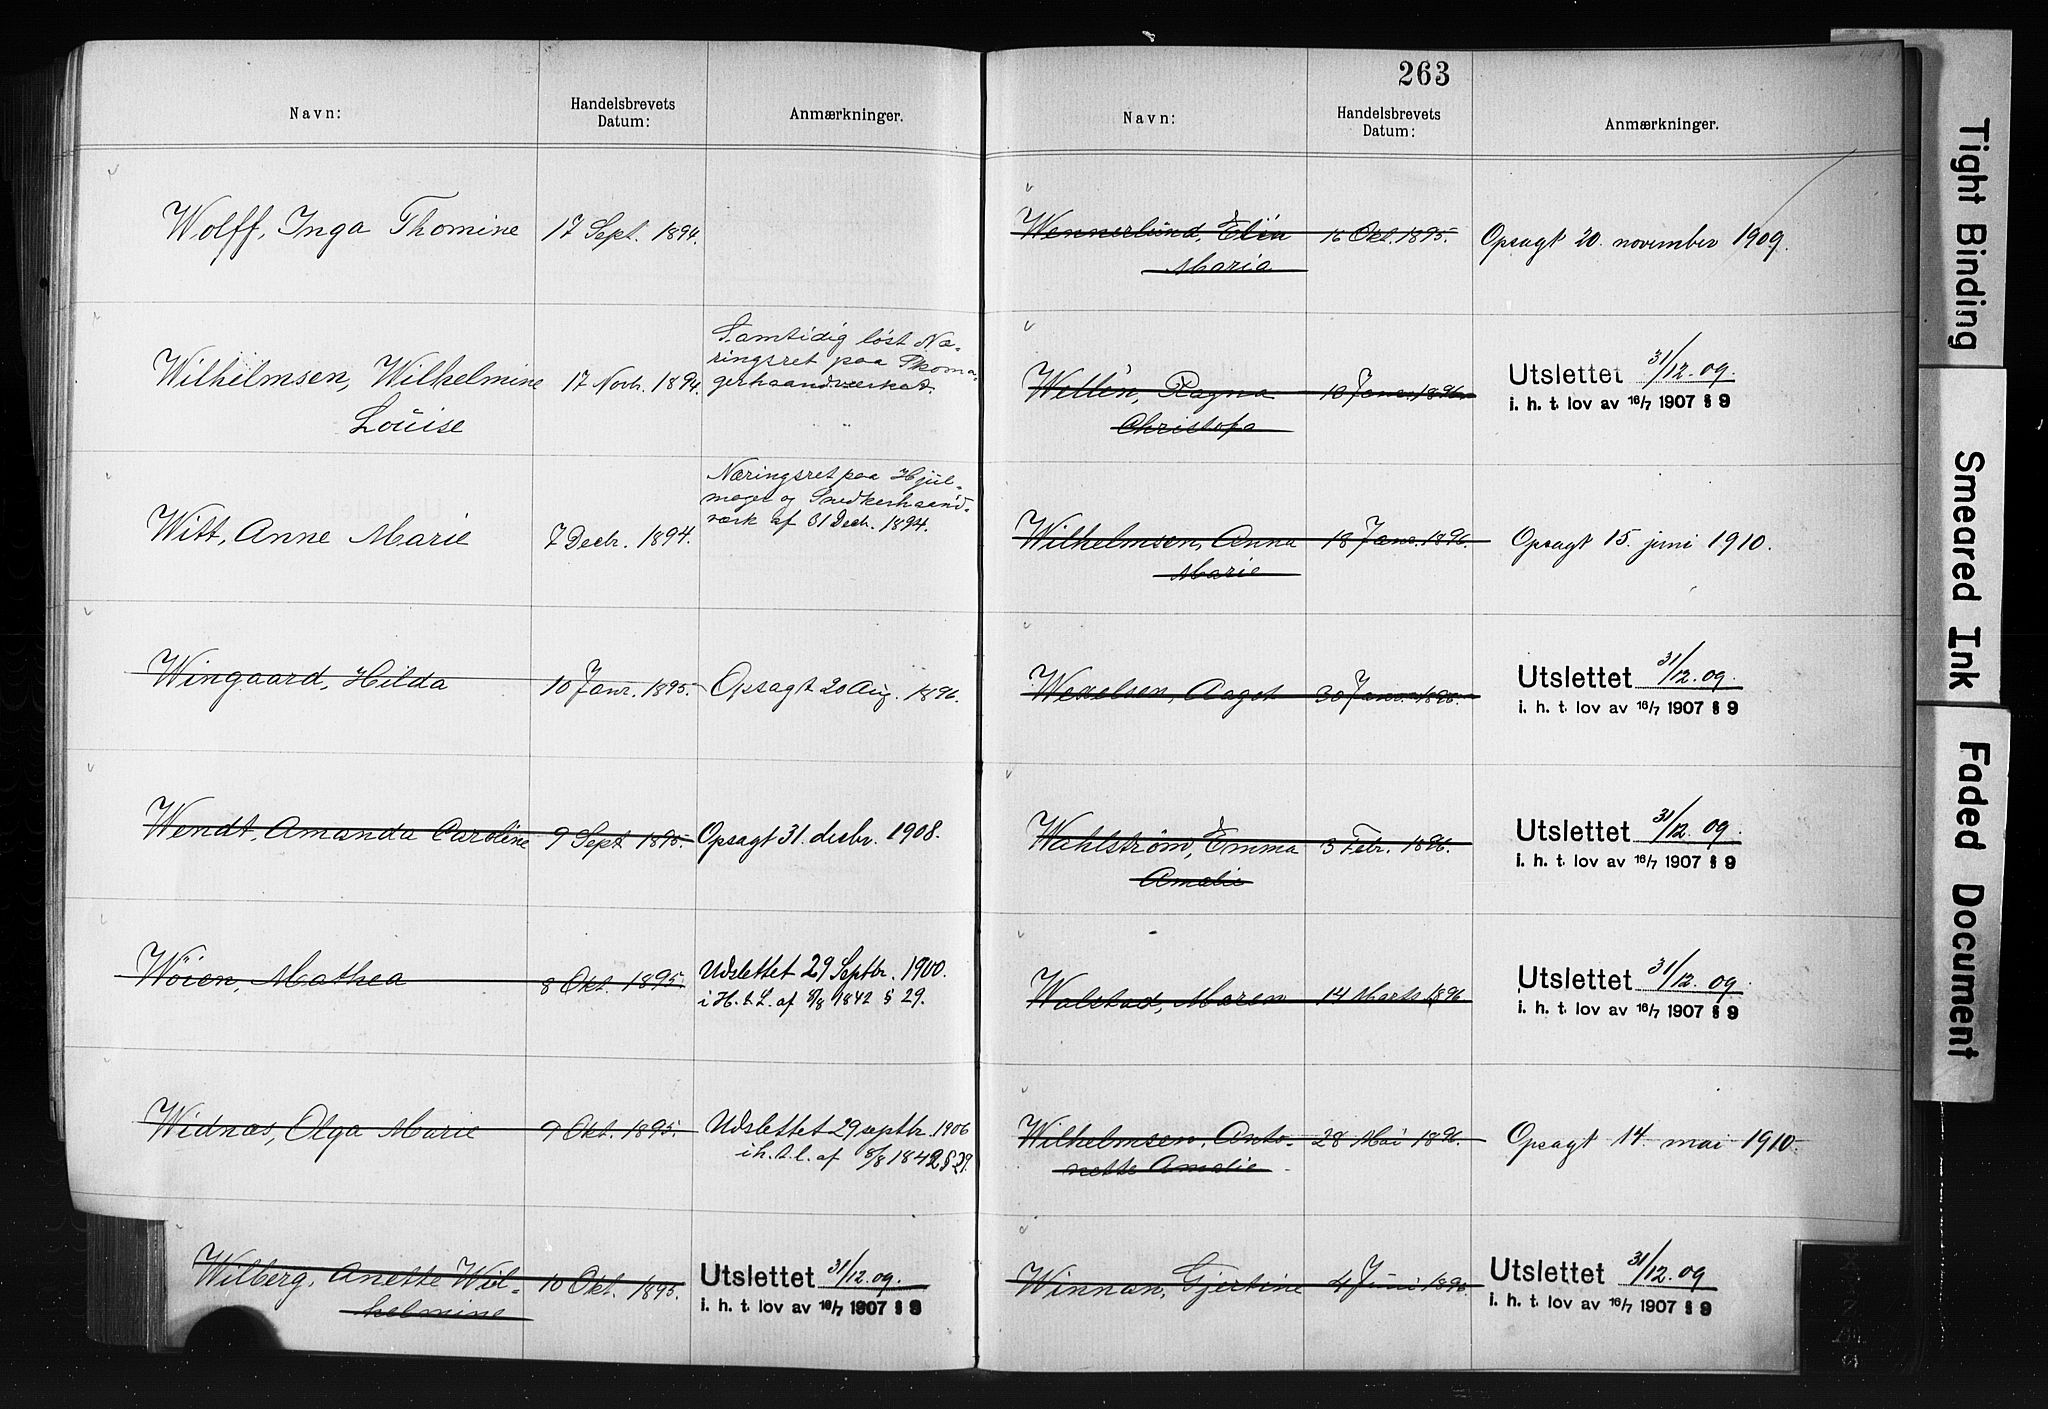 Navn:
Handelsbrevets
Datum:
Anmærkninger.
Wolff, Inga Thomine 17 Sept. 1894.
Wilhelmsen, Wilhelmine
Louise
17 Novb. 1894.
Samtidig løst Næ-
ringsret paa Skoma-
gerhaandværket.
Witt, Anne Marie 7 Decbr. 1894.
Næringsret paa Hjul-
mager og Snedkerhaand-
værk af 31 Decb. 1894.
Wingaard, Hilda 10 Janr. 1895. Opsagt 20 Aug. 1896.
Wendt, Amanda Caroline 9 Sept 1895. Opsagt 31. decbr. 1908.
Wöien, Mathea 8 Okt. 1895.
Udslettet 29 Septbr. 1900.
i H. t. L. af 8/8 1842 § 29.
Widnæs, Olga Marie 9 Okt. 1895.
Udslettet 29 septbr. 1906
i h. t. l. af 8/8 1842 § 29.
Wilberg, Anette Wil-
helmine
10 Okt. 1895.
Utslettet 31/12.09.
i. h. t. lov av 16/7 1907 § 9
263
Navn:
Handelsbrevets
Datum:
Anmærkninger.
Wennerlund, Elin
Maria
16 Okt. 1895. Opsagt 20. november 1909.
Wellén, Ragna
Christofa
10 Janr. 1896.
Utslettet 31/12.09.
i. h. t. lov av 16/7 1907 § 9
Wilhelmsen, Anna
Marie
18 Janr. 1896. Opsagt 15. juni 1910.
Wexelsen, Aagot 30 Janr. 1896.
Utslettet 31/12.09.
i. h. t. lov av 16/7 1907 § 9
Wahlstrøm, Emma
Amalie
3 Febr. 1896.
Utslettet 31/12.09.
i. h. t. lov av 16/7 1907 § 9
Walstad, Maren 14 Marts 1896
Utslettet 31/12.09.
i. h. t. lov av 16/7 1907 § 9
Wilhelmsen, Anto-
nette Amalie
28 Mai 1896. Opsagt 14. mai 1910.
Winnan, Gjertine 4 Juni 1896.
Utslettet 31/12.09
i. h. t. lov av 16/7 1907 § 9
Tight Binding
Smeared Ink
Faded Document